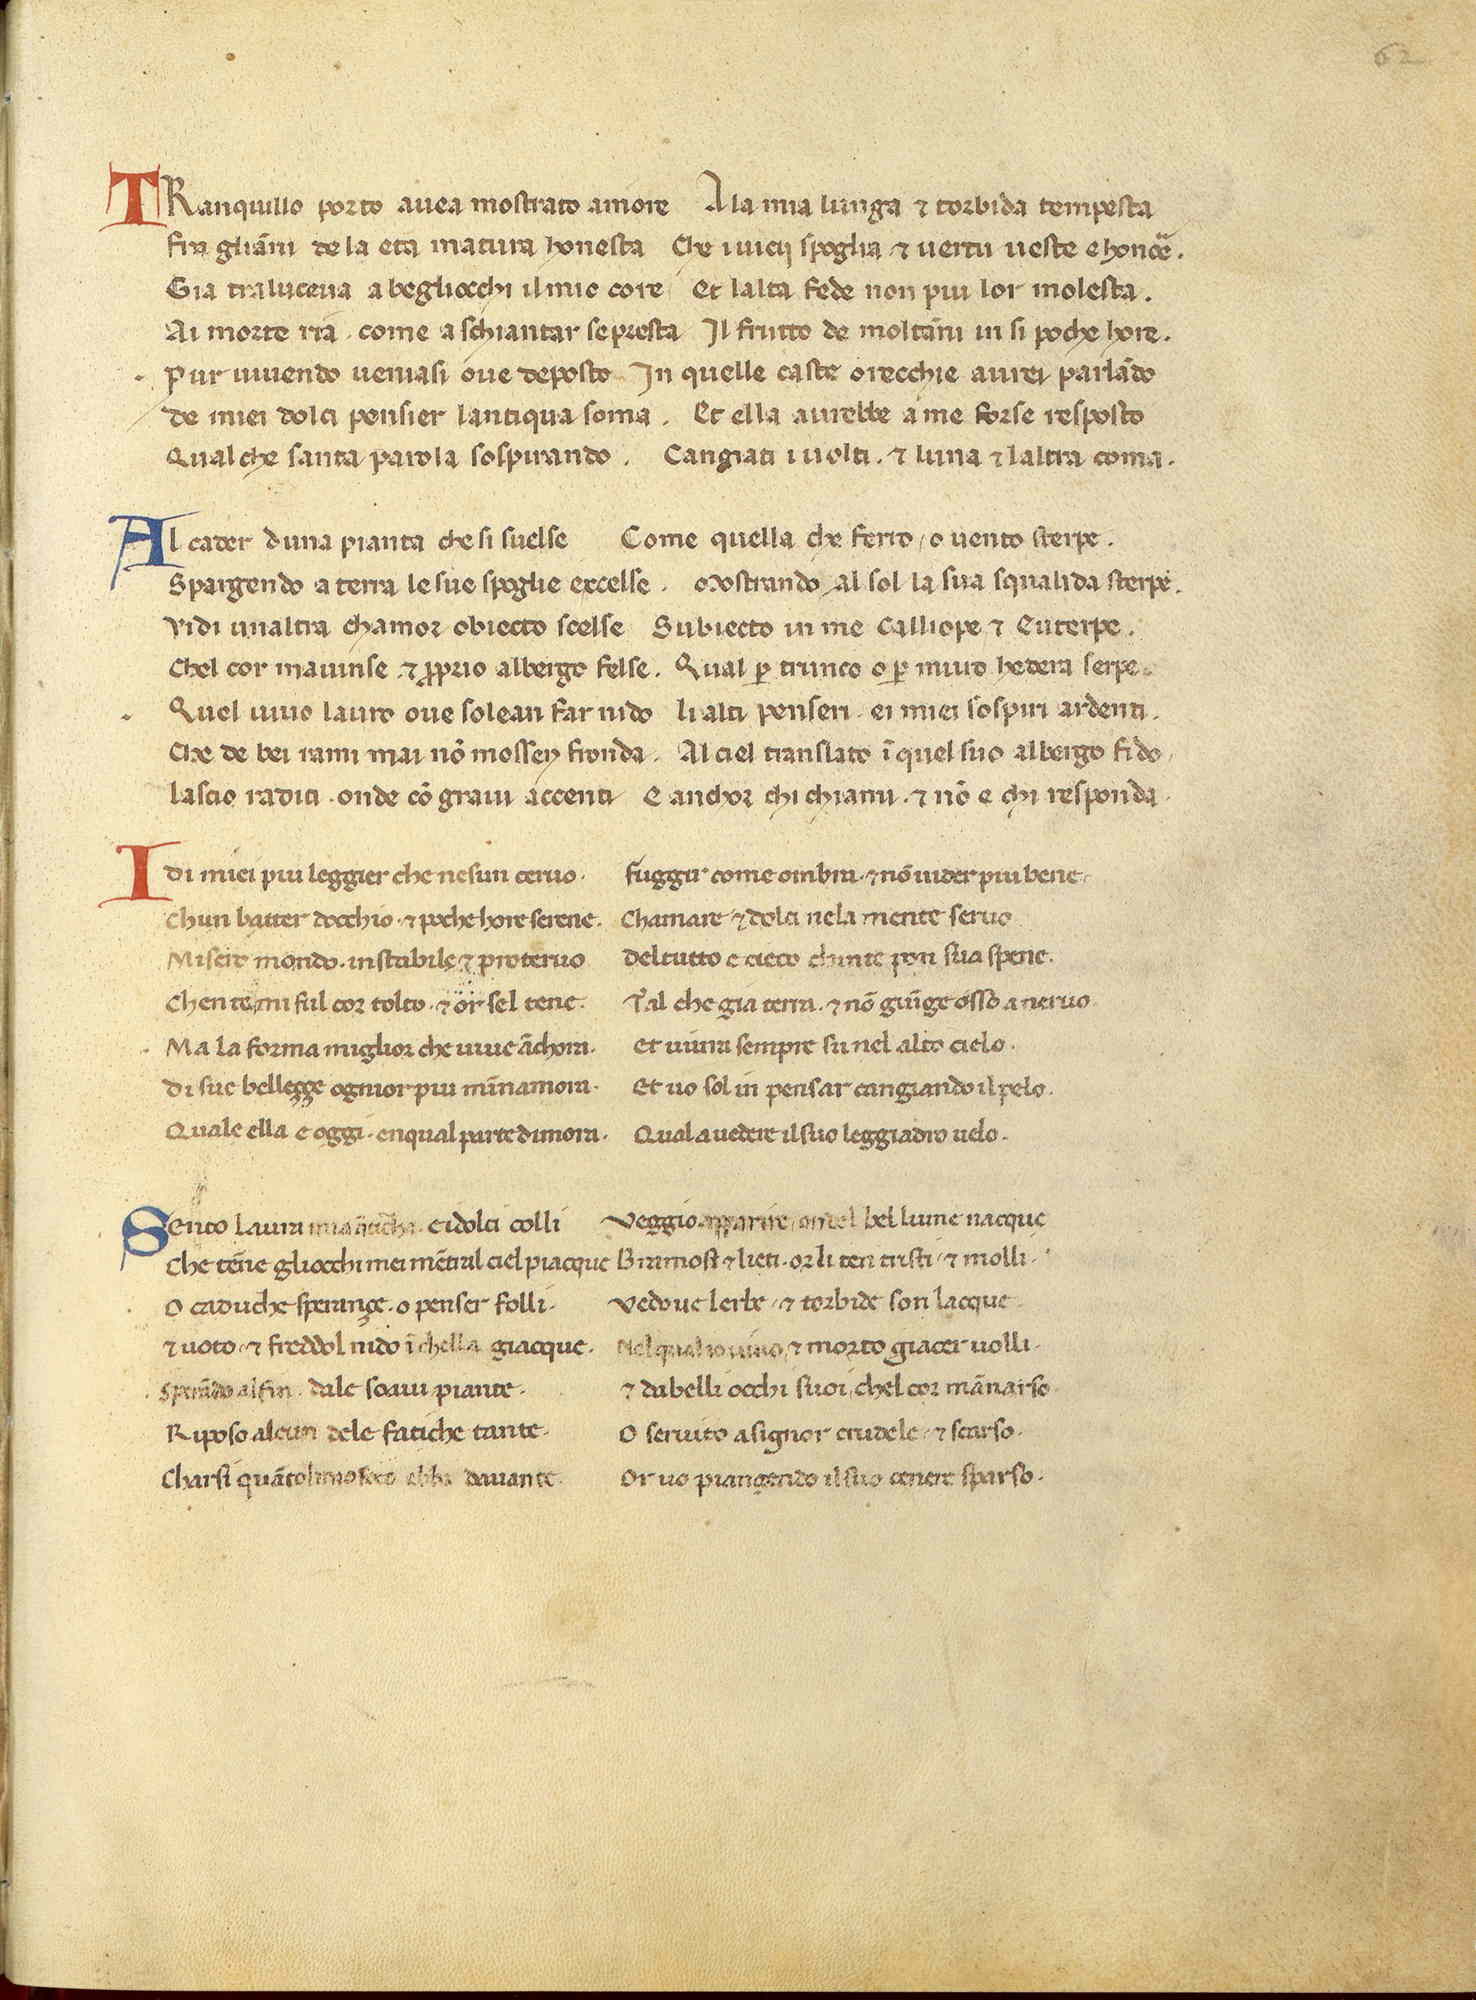 62
TRanquillo porto avea mostrato amore A la mia lunga & torbida tempesta
fra gliãni de la eta matura honesta Che i vicij spoglia & vertu veste e honoře.
Gia traluceva a begliocchi il mio core Et lalta fede non piu lor molesta.
Ai morte ria. come a schiantar se presta Il frutto de moltãni in si poche hore.
Pur vivendo veniasi ove deposto In quelle caste orecchie avrei parlãdo
de miei dolci pensier lantiqua soma. Et ella avrebbe a me forse resposto
Qual che santa parola sospirando. Cangiati i volti. & luna & laltra coma.
Al cader duna pianta che si svelse Come quella che ferro / o vento sterpe.
Spargendo a terra le sue spoglie excelse. Mostrando / al sol la sua squalida sterpe.
Vidi unaltra chamor obiecto scelse Subiecto in me Calliope & Euterpe.
Chel cor mavinse. & ꝓprio albergo felse. Qual ꝑ trunco o ꝑ muro hedera serpe.
Quel vivo lauro ove solean far nido li alti penseri. ei miei sospiri ardenti.
Che de bei rami mai nõ mossen fronda. Al ciel translato ĩ quel suo albergo fido.
lascio radici. onde cõ gravi accenti E anchor chi chiami. & nõ e chi responda.
I di miei piu leggier che nesun cervo. fuggir come ombra. & nõ vider piu bene.
Chun batter docchio. & poche hore serene. Chamare & dolci ne la mente servo
Misero mondo. instabile & protervo Del tutto e cieco chinte pon sua spene.
Chen te mi ful cor tolto. & or sel tene. Tal che gia terra. & nõ giũge osso a nervo.
Ma la forma miglior che vive ãchora. Et vivra sempre su nel alto cielo.
Di sue bellegge ognior piu mĩnamora. Et vo sol in pensar cangiando il pelo.
Quale ella e oggi. en qual parte dimora. Qual a vedere il suo leggiadro velo.
Sento laura mia ãticha. e i dolci colli Veggio apparire / ondel bel lume nacque
Che tẽne gliocchi mei mẽtral ciel piacque Bramosi & lieti. or li ten tristi. & molli.
O caduche sperançe. o penser folli. Vedove lerbe. & torbide son lacque
& voto. & freddol nido ĩ chella giacque. Nel qual io vivo / & morto giacer volli.
Sperãdo alfin. dale soavi piante. & dabelli occhi suoi / chel cor mãnarso
Riposo alcun dele fatiche tante. O servito a signor crudele. & scarso.
Charsi quãtol mio foco ebbi davante. Or vo piangendo il suo cenere sparso.